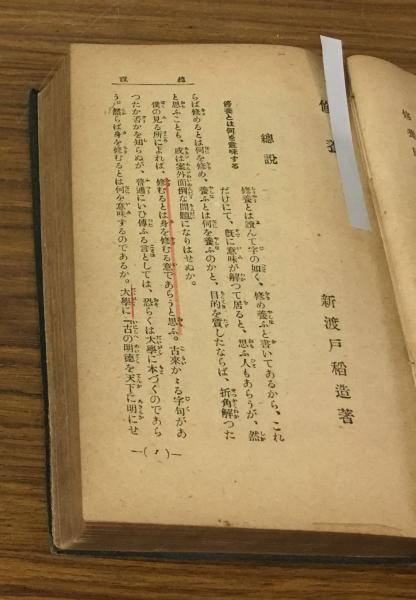 修養
新渡戸稲造著
總説
修養とは何を意味する
修養とは讀んで字の如く、修め養ふと書いてあるから、これ
だけにて、既に意味が解つて居ると、思ふ人もあらうが、然
らば修めるとは何を修め、養ふとは何を養ふのかと、目的を質したならば、折角解つた
と思ふことも、或は案外面倒な問題になりはせぬか。
僕の見る所によれば、修むるとは身を修むる意であらうと思ふ。古來かゝる字句があ
つたか否かを知らぬが、普通にいひ傳ふる言としては、恐らくは大學に本づくのであら
う。然らば身を修むるとは何を意味するのであるか。大學に『古の明徳を天下に明にせ
總説
—(1)—